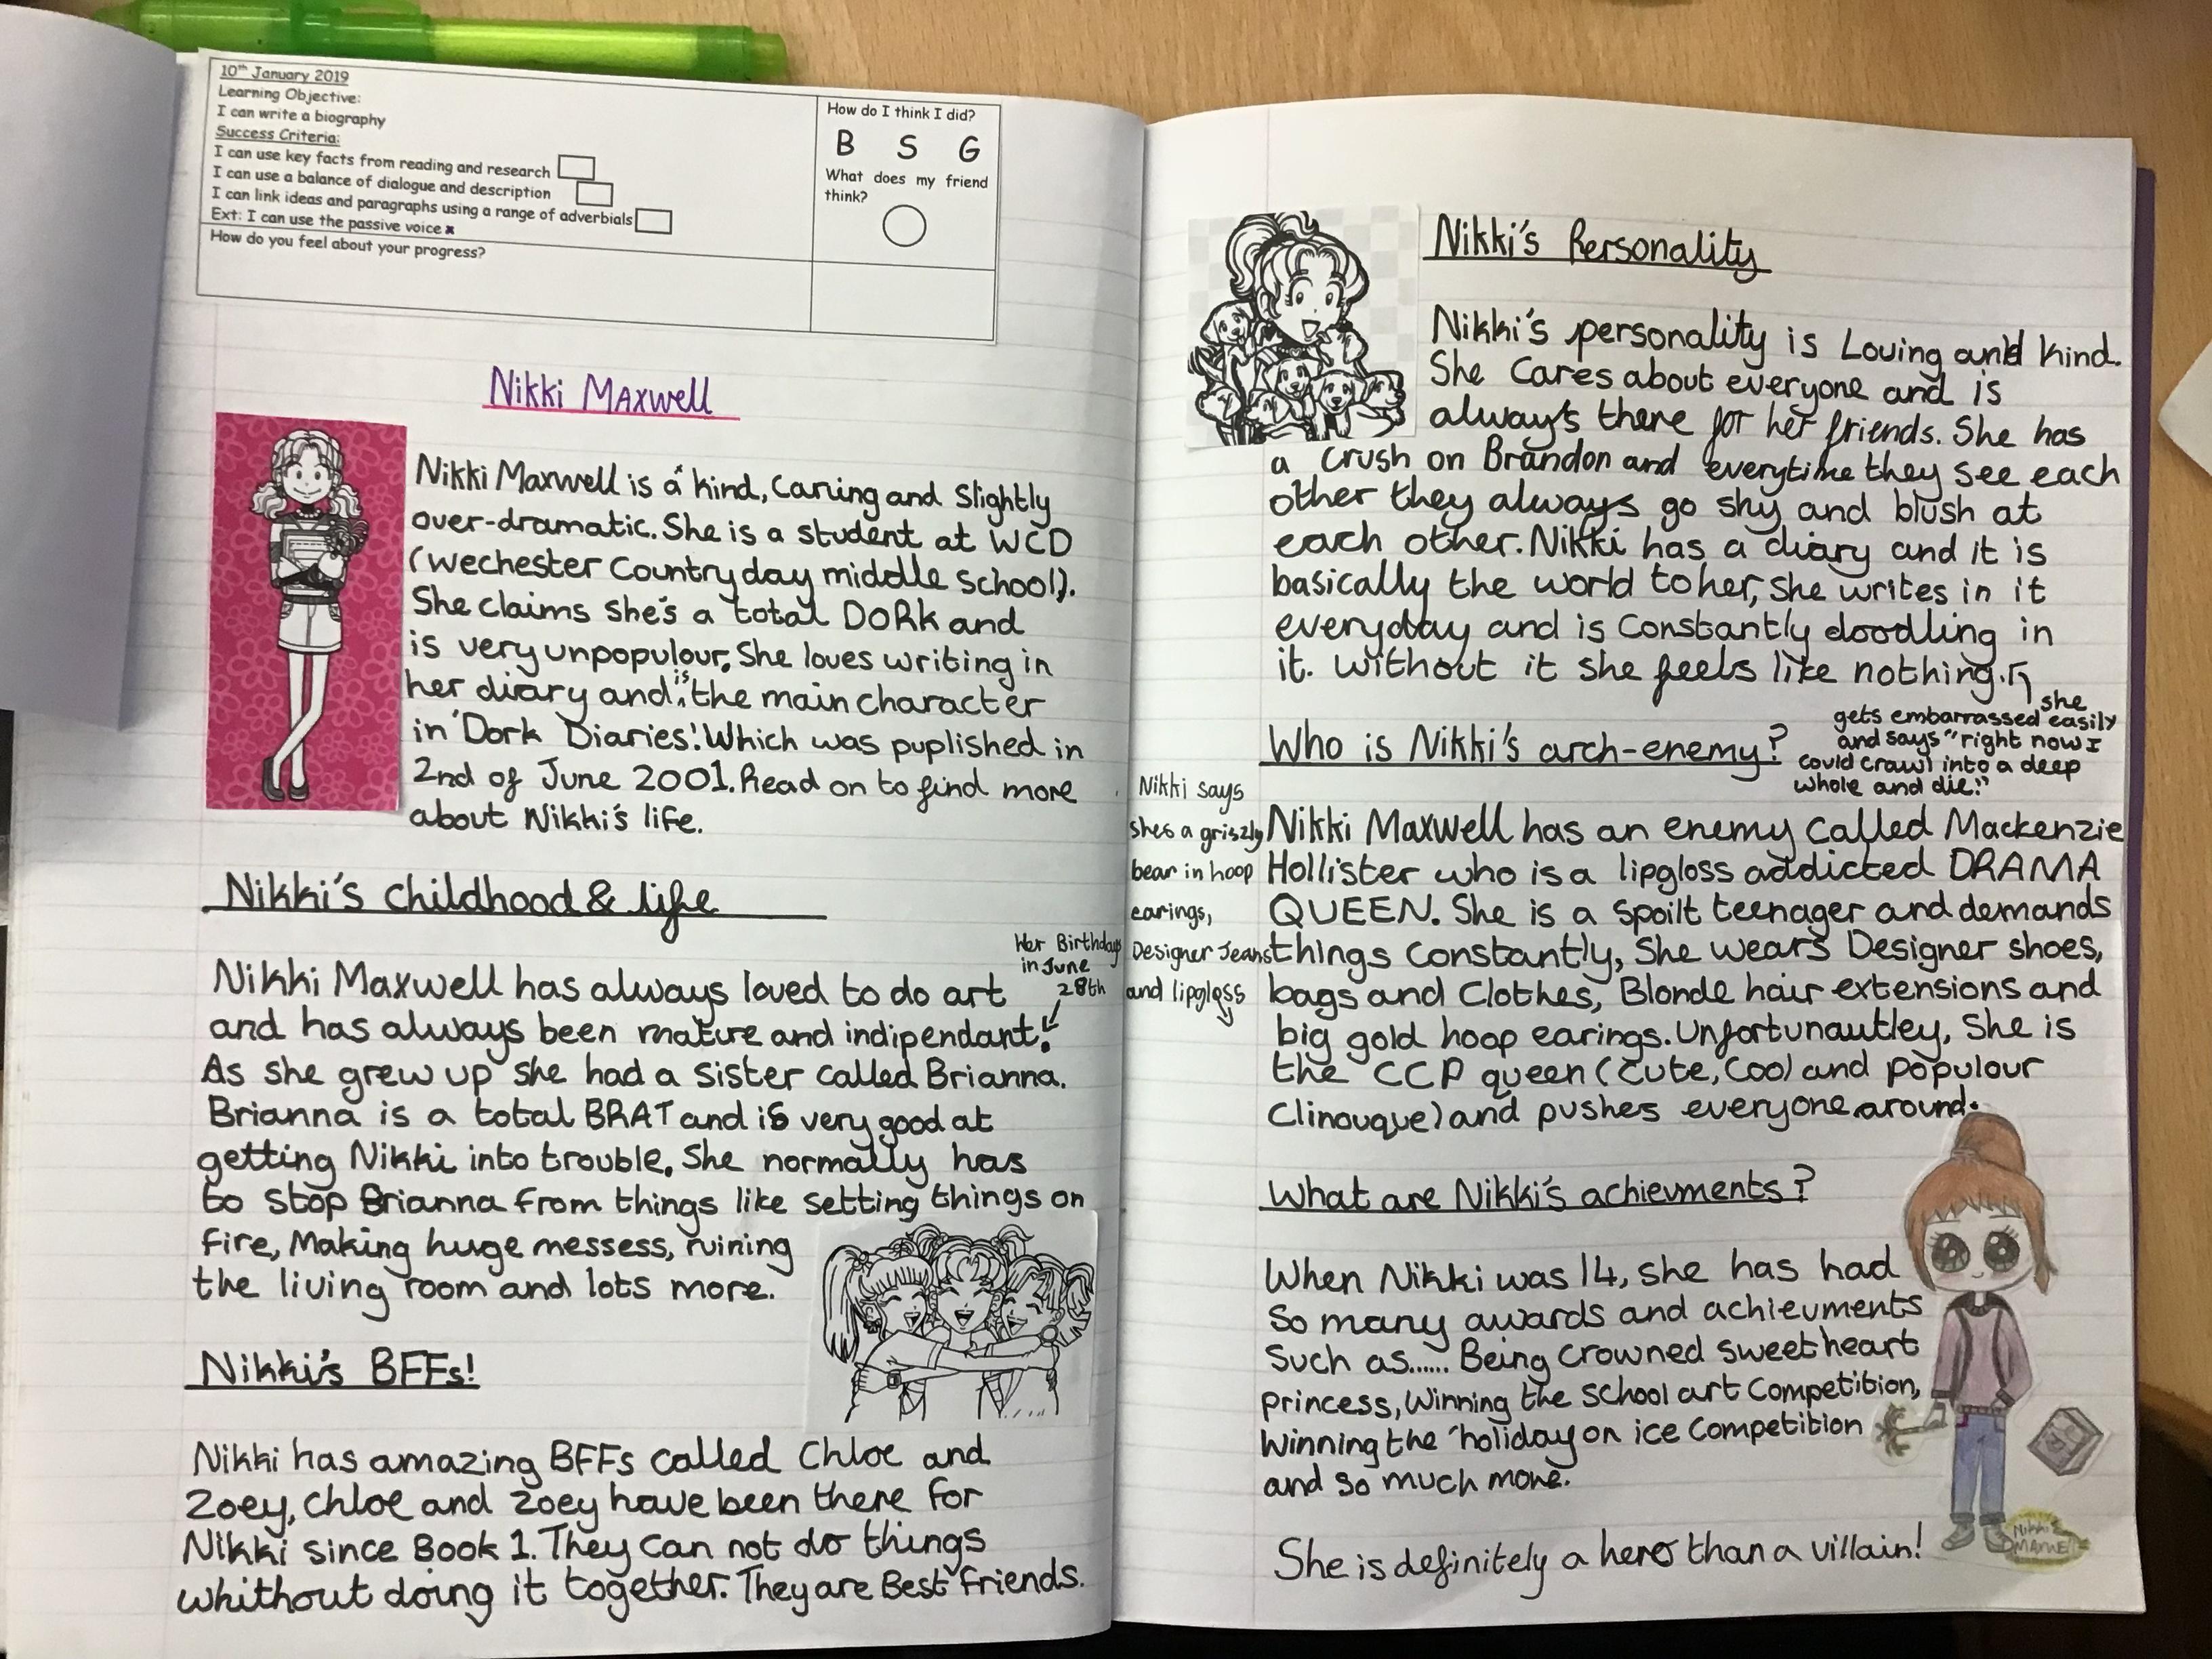 10th January 2019
Learning Objective:
I can write a biography
Success Criteria:
I can use key facts from reading and research
I can use a balance of dialogue and description
I can link ideas and paragraphs using a range of adverbials
Ext: I can use the passive voice x
How do you feel about your progress?
How do I think I did?
B S G
What does my friend
think?
Nikki Maxwell
Nikki Maxwell is a kind, Caring and Slightly
over-dramatic. She is a student at WCD
(wechester Country day middle school).
She claims she's a total DORK and
is very unpopulour. She loves writing in
her diary and is the main character
in 'Dork Diaries!' Which was puplished in
2nd of June 2001. Read on to find more
about Nikki's life.
Nikki's Childhood & life
Her Birthdays
in June
28th
Nikki Maxwell has always loved to do art
and has always been mature and indipendant.
As she grew up she had a sister called Brianna.
Brianna is a total BRAT and is very good at
getting Nikki into trouble. She normally has
to stop Brianna from things like setting things on
fire, Making huge messess, ruining
the living room and lots more.
Nikki's BFFs!
Nikki has amazing BFFs called Chloe and
Zoey, Chloe and Zoey have been there for
Nikki since Book 1. They can not do things
whithout doing it together. They are Best friends.
Nikki's Personality
Nikki's personality is Loving and kind.
She Cares about everyone and is
always there for her friends. She has
a crush on Brandon and everytime they see each
other they always go shy and blush at
each other. Nikki has a diary and it is
basically the world to her, she writes in it
everyday and is constantly doodling in
it. Without it she feels like nothing.
she
gets embarrassed easily
and says "right now I
could crawl into a deep
whole and die!"
Who is Nikki's arch-enemy?
Nikki says
shes a griszly
bear in hoop
earings,
Designer Jeans
and lipgloss
Nikki Maxwell has an enemy called Mackenzie
Hollister who is a lipgloss addicted DRAMA
QUEEN. She is a spoilt teenager and demands
things constantly, She wears Designer shoes,
bags and Clothes, Blonde hair extensions and
big gold hoop earings. Unfortunautley, She is
the CCP queen (Cute, Cool and populour
Clinouque) and pushes everyone around.
What are Nikki's achievments?
When Nikki was 14, she has had
So many awards and achievments
Such as...... Being crowned sweetheart
princess, Winning the school art Competition,
Winning the 'holiday on ice Competition
and so much more.
She is definitely a hero than a villain!
Nikki
MAXWELL